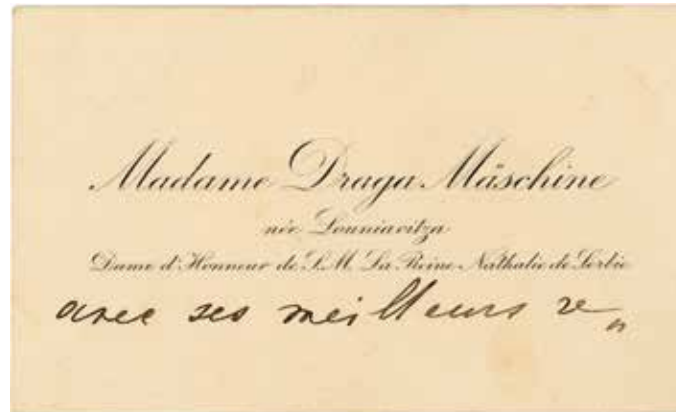 Madame Draga Mäschine
née Louniavitza
Dame d'Honneur de S.M. La Reine Nathalie de Serbie
avec ses meilleurs